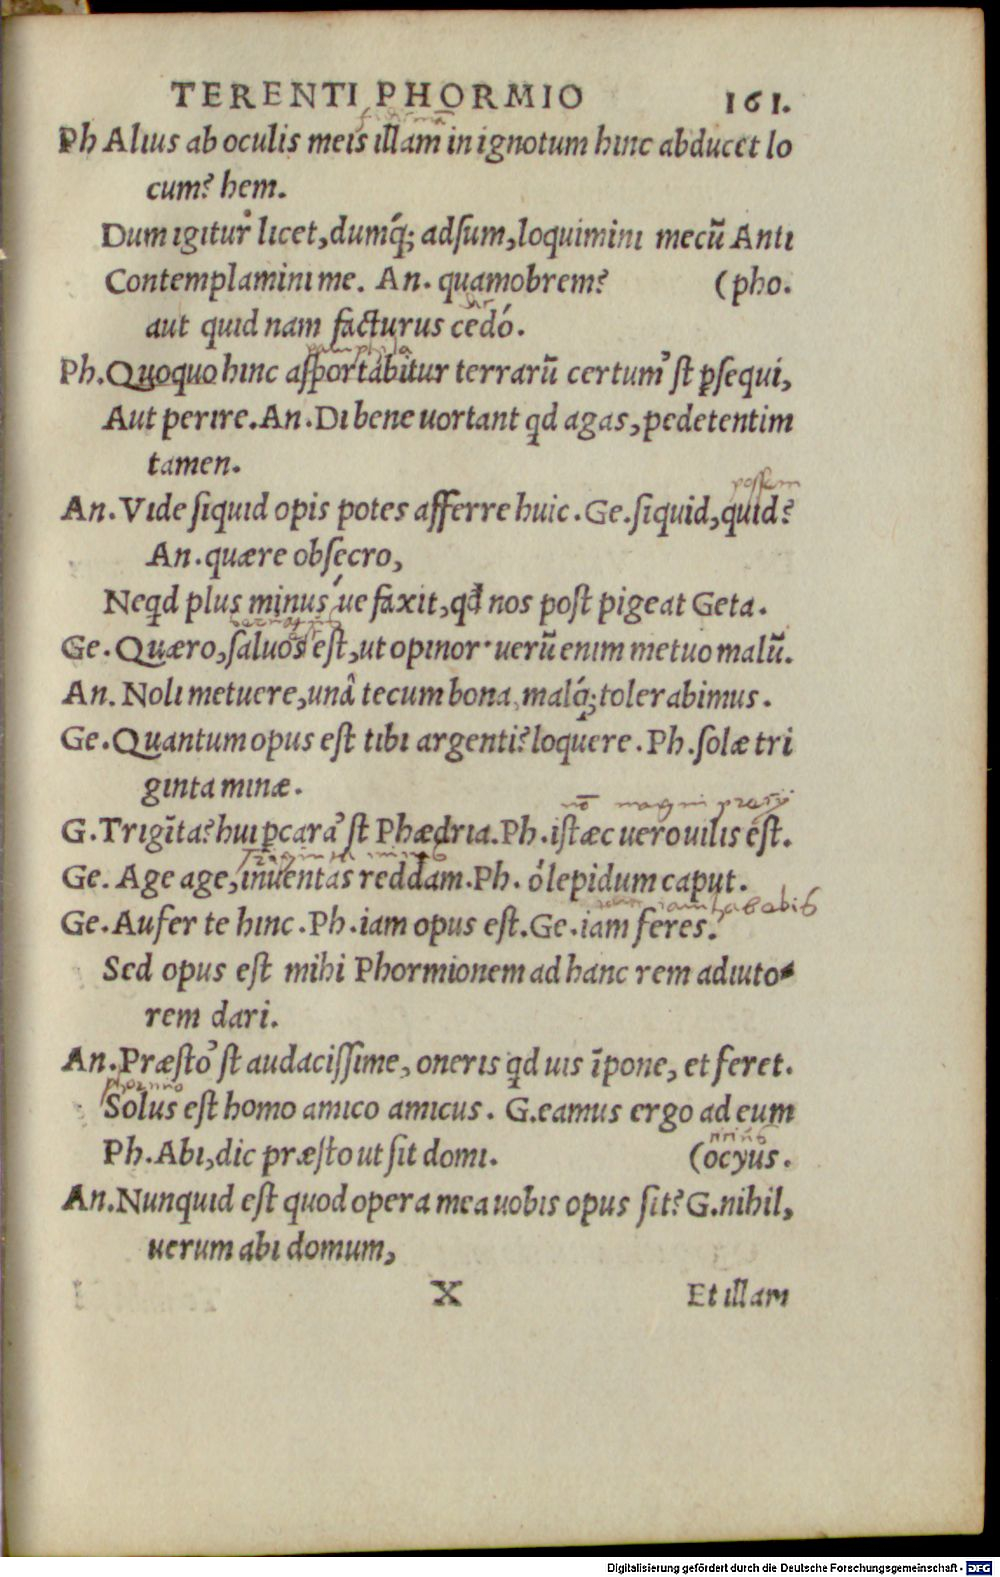 TERENTI PHORMIO 161.
Ph Alius ab oculis meis illam in ignotum hinc abducet lo
cum? hem.
Dum igitur licet, dumq́; adsum, loquimini mecū Anti
Contemplamini me. An. quamobrem? (pho.
aut quid nam facturus cedó.
pamphila
Ph. Quoquo hinc asportabitur terrarū certum' st ꝑsequi,
Aut perire. An. Di bene uortant qd agas, pedetentim
tamen.
possem
An. Vide siquid opis potes afferre huic. Ge. siquid, quid?
An. quære obsecro,
Neqd plus minus ́ue faxit, qd nos post pigeat Geta.
Ge. Quæro, saluos est, ut opinor· uerū enim metuo malū.
An. Noli metuere, unâ tecum bona, malq́; tolerabimus.
Ge. Quantum opus est tibi argenti? loquere. Ph. solæ tri
ginta minæ.
nō magni præcij
G. Trigīta? hui ꝑcara' st Phædria. Ph. istæc uero uilis est.
Triginta minas
Ge. Age age, inuentas reddam. Ph. ó lepidum caput.
iam habebis
Ge. Aufer te hinc. Ph. iam opus est. Ge. iam feres.
Sed opus est mihi Phormionem ad hanc rem adiuto-
rem dari.
An. Præsto' st audacissime, oneris qd uis īpone, et feret.
phormio
Solus est homo amico amicus. G. eamus ergo ad eum
Ph. Abi, dic præsto ut sit domi. (ocyus.
An. Nunquid est quod opera mea uobis opus sit? G. nihil,
uerum abi domum,
X Et illam
Digitalisierung gefördert durch die Deutsche Forschungsgemeinschaft - DFG